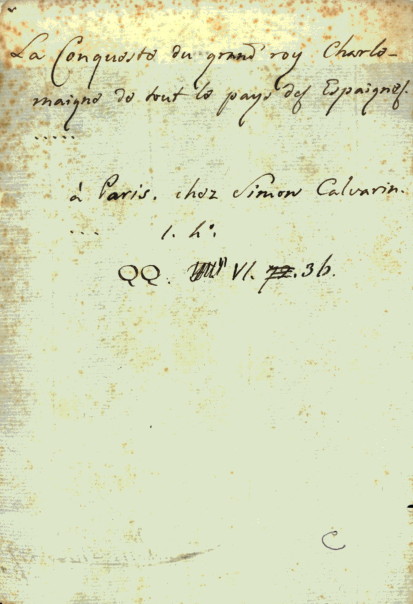 La Conqueste du grand roy Charle-
maigne de tout le pays des Espaignes.
.....
à Paris. chez Simon Calvarin.
... l. h°.
QQ. VI. 3b.
C